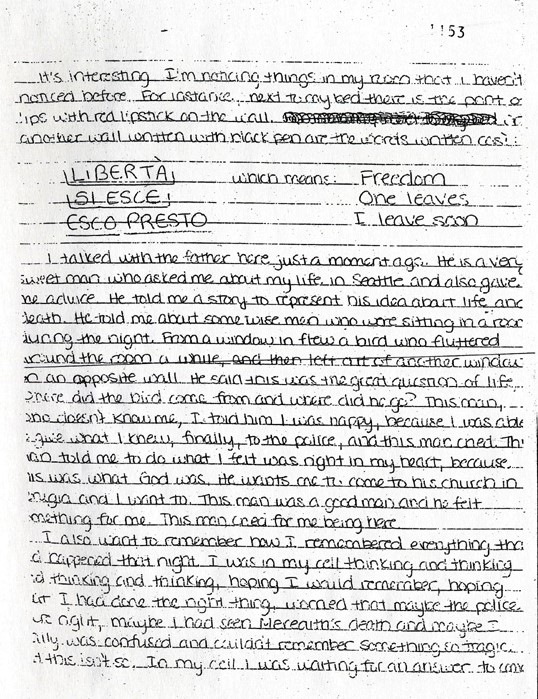 1153
It's interesting. I'm noticing things in my room that I haven't
noticed before. For instance, next to my bed there is the print o
lips with red lipstick on the wall.
another wall written with black pen are the words written così:
¡LIBERTÀ¡ which means: Freedom
¡SI ESCE¡ One leaves
ESCO PRESTO I leave soon
I talked with the father here just a moment ago. He is a very
sweet man who asked me about my life in Seattle and also gave
me advice. He told me a story to represent his idea about life and
death. He told me about some wise men who were sitting in a room
during the night. From a window in flew a bird who fluttered
around the room a while, and then left out of another window
on an opposite wall. He said this was the great question of life.
where did the bird come from and where did he go? This man,
who doesn't know me, I told him I was happy, because I was able
give what I knew, finally, to the police, and this man cried. Th
an told me to do what I felt was right in my heart, because
is was what God was. He wants me to come to his church in
rugia and I want to. This man was a good man and he felt
mething for me. This man cried for me being here
I also want to remember how I remembered everything tha
d happened that night. I was in my cell thinking and thinking
d thinking and thinking, hoping I would remember, hoping
at I had done the right thing, worried that maybe the police
re right, maybe I had seen Meredith's death and maybe I
ally was confused and couldn't remember something so tragic.
t this isn't so. In my cell I was waiting for an answer to come